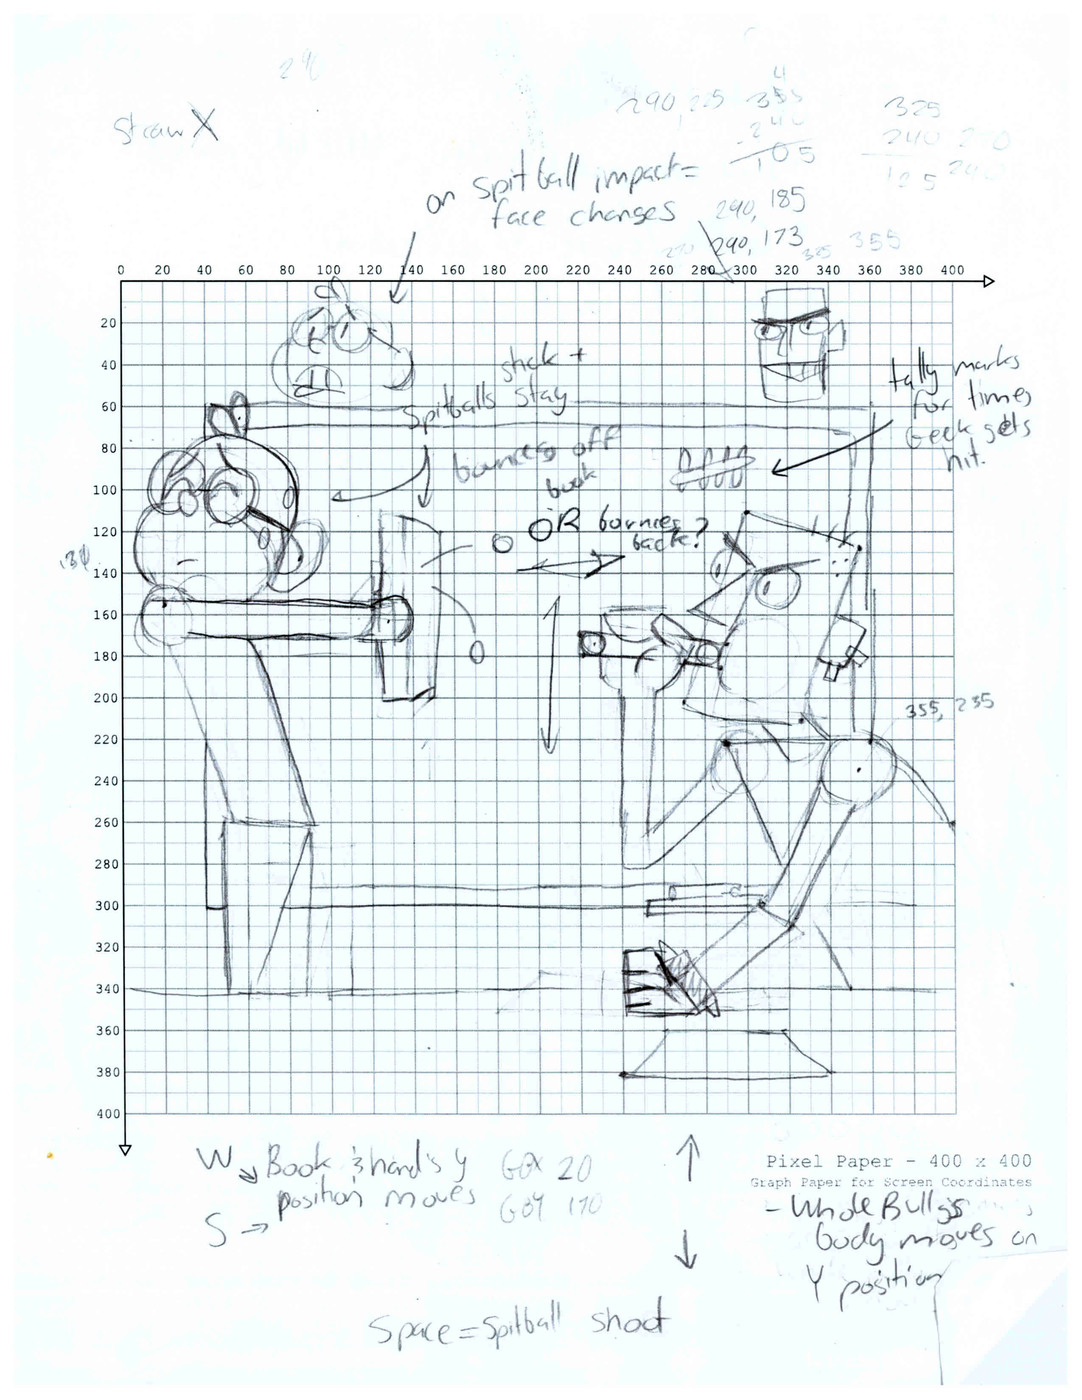 290, 225
355
4
240
105
325
240
125
240
Straw X
on Spitball impact=
face changes
290, 185
290, 173
325
355
0 20 40 60 80 100 120 140 160 180 200 220 240 260 280 300 320 340 360 380 400
20
40
60
80
100
120
140
160
180
200
220
240
260
280
300
320
340
360
380
400
stick +
Spitballs stay
bounces off
book
OR bounces
back?
tally marks
for times
Geek gets
hit.
355, 235
W Book & hand's y
position moves
S
GBX 20
GBY 170
Pixel Paper - 400 x 400
Graph Paper for Screen Coordinates
- Whole Bully's
body moves on
Y position
Space = Spitball shoot